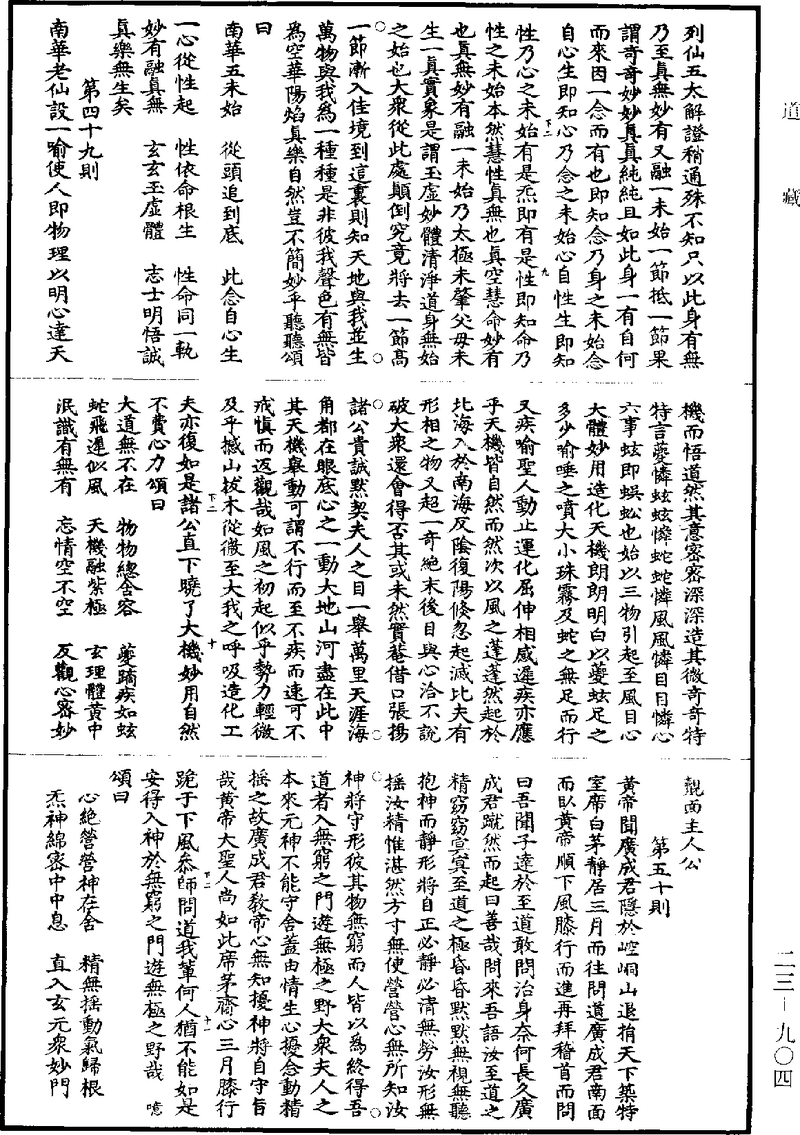 道藏
二三―九〇四
列仙五太解證稍通殊不知只以此身有無
乃至真無妙有又融一未始一節抵一節果
謂奇奇妙妙真真純純且如此身一有自何
而來因一念而有也即知念乃身之未始念
自心生即知心乃念之未始心自性生即知
性乃心之未始有是炁即有是性即知命乃
性之未始本然慧性真無也真空慧命妙有
也真無妙有融一未始乃太極未肇父母未
生一真實象是謂玉虛妙體清淨道身無始
之始也大衆從此處顛倒究竟將去一節高
一節漸入佳境到這裏則知天地與我並生
萬物與我為一種種是非彼我聲色有無皆
為空華陽焰真樂自然豈不簡妙乎聽聽頌
曰
南華五未始　從頭追到底　此念自心生
一心從性起　性依命根生　性命同一軌
妙有融真無　玄玄玉虛體　志士明悟誠
真樂無生矣
第四十九則
南華老仙設一喻使人即物理以明心達天
機而悟道然其意密密深深造其微奇奇特
特言夔憐蚿蚿憐蛇蛇憐風風憐目目憐心
六事蚿即蜈蚣也始以三物引起至風目心
大體妙用造化天機朗朗明白以夔蚿足之
多少喻唾之噴大小珠霧及蛇之無足而行
又疾喻聖人動止運化屈伸相感遲疾亦應
乎天機皆自然而然次以風之蓬蓬然起於
北海入於南海反陰復陽倏忽起滅比夫有
形相之物又超一奇絕末後目與心洽不說
破大衆還會得否其或未然實菴借口張揚
諸公貴誠默契夫人之目一舉萬里天涯海
角都在眼底心之一動大地山河盡在此中
其天機舉動可謂不行而至不疾而速可不
戒慎而返觀哉如風之初起似乎勢力輕微
及乎撼山拔木從微至大我之呼吸造化工
夫亦復如是諸公直下曉了大機妙用自然
不費心力頌曰
大道無不在　物物總含容　夔蹢疾如蚿
蛇飛遲似風　天機融紫極　玄理體黃中
泯識有無有　忘情空不空　反觀心密妙
覿面主人公
第五十則
黃帝聞廣成君隱於崆峒山退捐天下築特
室席白茅靜居三月而往問道廣成君南面
而臥黃帝順下風膝行而進再拜稽首而問
曰吾聞子達於至道敢問治身奈何長久廣
成君蹴然而起曰善哉問來吾語汝至道之
精窈窈冥冥至道之極昏昏默默無視無聽
抱神而靜形將自正必靜必清無勞汝形無
搖汝精惟湛然方寸無使營營心無所知汝
神將守形彼其物無窮而人皆以為終得吾
道者入無窮之門遊無極之野大衆夫人之
本來元神不能守舍蓋由情生心擾念動精
搖之故廣成君教帝心無知擾神將自守旨
哉黃帝大聖人尚如此席茅齋心三月膝行
跪于下風叅師問道我輩何人猶不能如是
安得入神於無窮之門遊無極之野哉　噫
頌曰
心絕營營神在舍　精無搖動氣歸根
炁神綿密中中息　直入玄元衆妙門